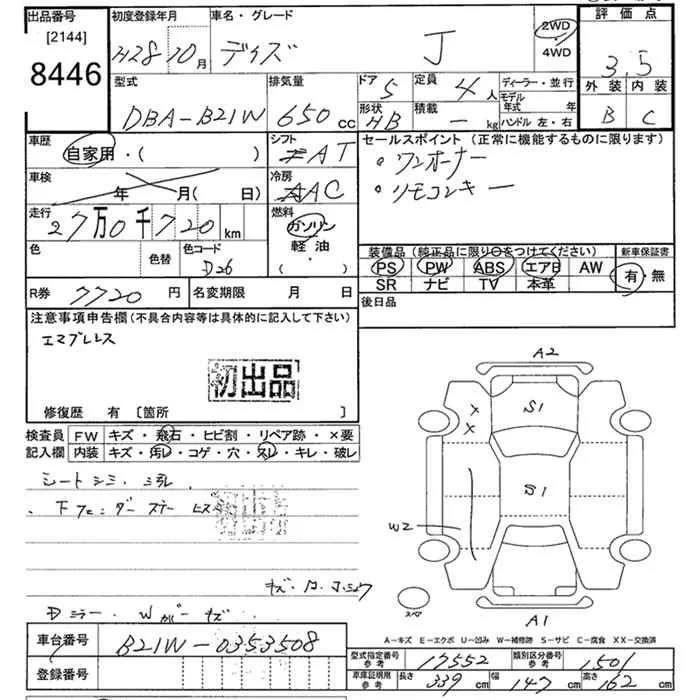 出品番号 [2144] 8446
初度登録年月 H28 10月
車名・グレード デイズ J
2WD・4WD
評価点 3.5
外装 B 内装 C
型式 DBA-B21W
排気量 650cc
ドア 5
定員 4人
形状 HB
積載 - kg
ディーラー・並行
モデル年式 年
ハンドル 左・右
車歴 自家用・( )
シフト AT
車検 年 月( 日)
冷房 AAC
セールスポイント(正常に機能するものに限ります)
・ワンオーナー
・リモコンキー
走行 27万0千720km
燃料 ガソリン 軽油・( )
色 色替 色コード D26
装備品(純正品に限り○をつけてください) 新車保証書
PS PW ABS エアB AW
SR ナビ TV 本革
有・無
R券 7720円
名変期限 月 日
後日品
注意事項申告欄(不具合内容等は具体的に記入して下さい)
エマブレレス
初出品
修復歴 有 [箇所 ]
検査員記入欄
FW キズ・飛石・ヒビ割・リペア跡・×要
内装 キズ・汚レ・コゲ・穴・スレ・キレ・破レ
シートシミ・
キズ・
Dミラー・W キズ
A2
S1
S1
W2
A1
スペア
A-キズ E-エクボ U-凹み W-補修跡 S-サビ C-腐食 XX-交換済
車台番号 B21W-0353508
登録番号
型式指定番号 参考 17552
類別区分番号 参考 1501
車庫証明用 参考 長さ 339cm 幅 147cm 高さ 162cm